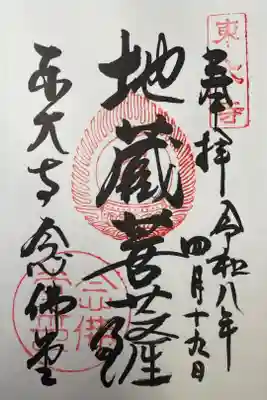 東大寺
奉拝
令和八年
四月十九日
地蔵菩薩
東大寺念佛堂
念佛堂